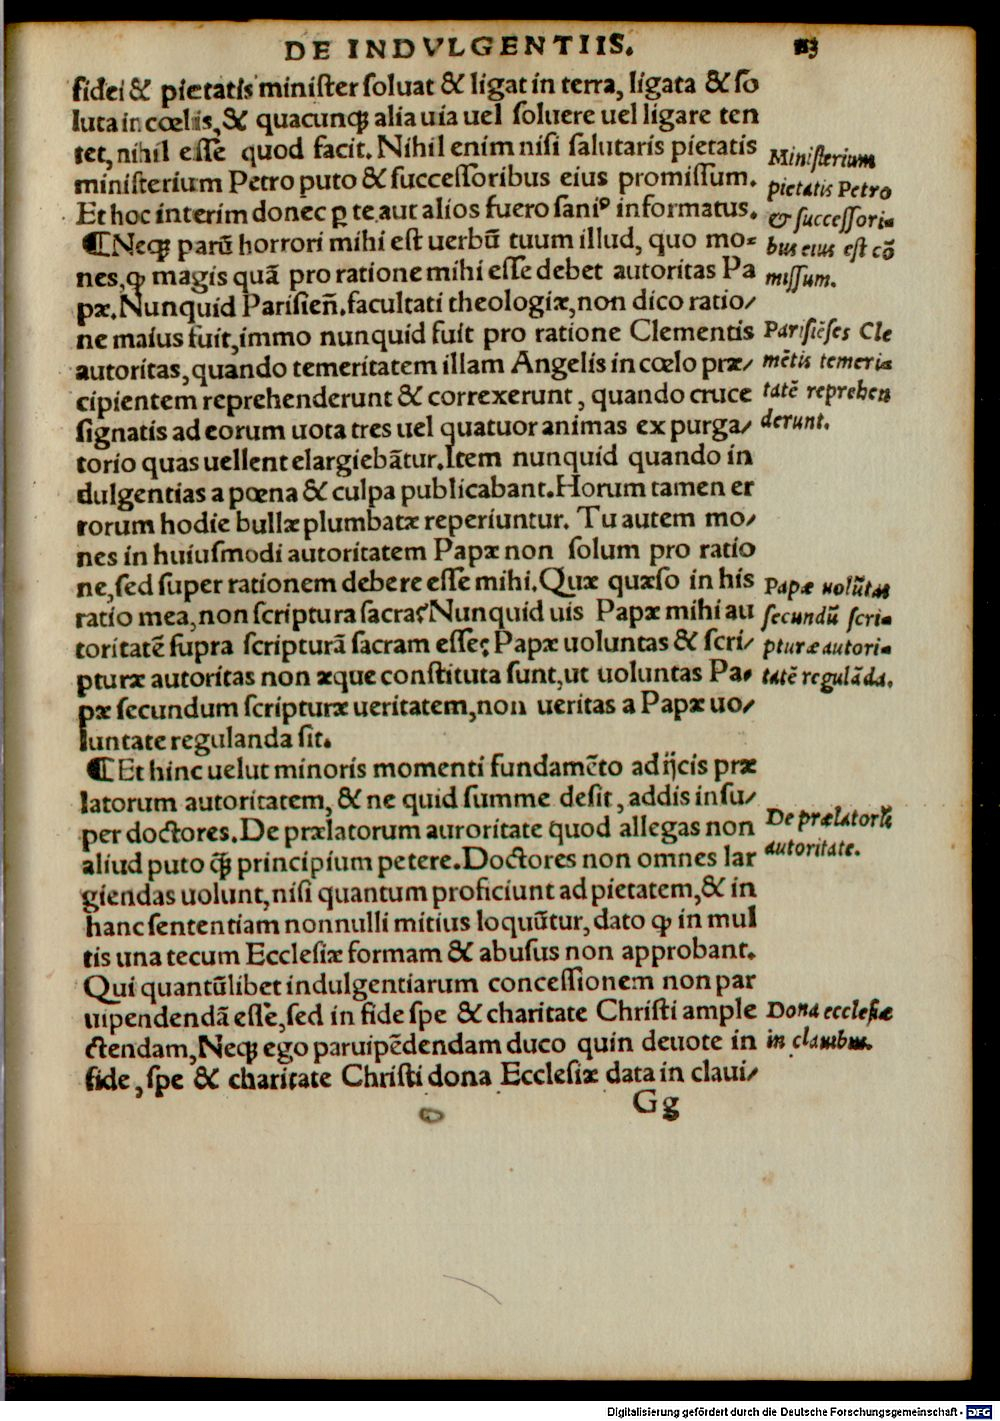 DE INDVLGENTIIS.
fidei & pietatis minister soluat & ligat in terra, ligata & so
luta in cœlis, & quacunqꝫ alia uia uel soluere uel ligare ten
tet, nihil esse quod facit. Nihil enim nisi salutaris pietatis
ministerium Petro puto & successoribus eius promissum.
Et hoc interim donec ꝑ te aut alios fuero saniꝰ informatus.
Ministerium
pietatis Petro
& successori=
bus eius est cõ
missum.
¶Neqꝫ parũ horrori mihi est uerbũ tuum illud, quo mo=
nes, ꝙ magis quã pro ratione mihi esse debet autoritas Pa
pæ. Nunquid Parisieñ. facultati theologiæ, non dico ratio/
ne maius fuit, immo nunquid fuit pro ratione Clementis
autoritas, quando temeritatem illam Angelis in cœlo præ/
cipientem reprehenderunt & correxerunt, quando cruce
signatis ad eorum uota tres uel quatuor animas ex purga/
torio quas uellent elargiebãtur. Item nunquid quando in
dulgentias a pœna & culpa publicabant. Horum tamen er
rorum hodie bullæ plumbatæ reperiuntur. Tu autem mo/
nes in huiusmodi autoritatem Papæ non solum pro ratio
ne, sed super rationem debere esse mihi. Quæ quæso in his
ratio mea, non scriptura sacra? Nunquid uis Papæ mihi au
toritatẽ supra scripturã sacram esse? Papæ uoluntas & scri/
pturæ autoritas non æque constituta sunt, ut uoluntas Pa=
pæ secundum scripturæ ueritatem, non ueritas a Papæ uo/
luntate regulanda sit.
Parisiẽses Cle
mẽtis temeri=
tatẽ reprehen
derunt.
Papæ uolũtas
secundũ scri=
pturæ autori=
tatẽ regulãda.
¶Et hinc uelut minoris momenti fundamẽto adijcis præ
latorum autoritatem, & ne quid summe desit, addis insu/
per doctores. De prælatorum auroritate quod allegas non
aliud puto qꝫ̃ principium petere. Doctores non omnes lar
giendas uolunt, nisi quantum proficiunt ad pietatem, & in
hanc sententiam nonnulli mitius loquũtur, dato ꝙ in mul
tis una tecum Ecclesiæ formam & abusus non approbant.
Qui quantũlibet indulgentiarum concessionem non par
uipendendã esse, sed in fide spe & charitate Christi ample
ctendam, Neqꝫ ego paruipẽdendam duco quin deuote in
fide, spe & charitate Christi dona Ecclesiæ data in claui/
De prælatorũ
autoritate.
Dona ecclesiæ
in clauibus.
Gg
Digitalisierung gefördert durch die Deutsche Forschungsgemeinschaft - DFG